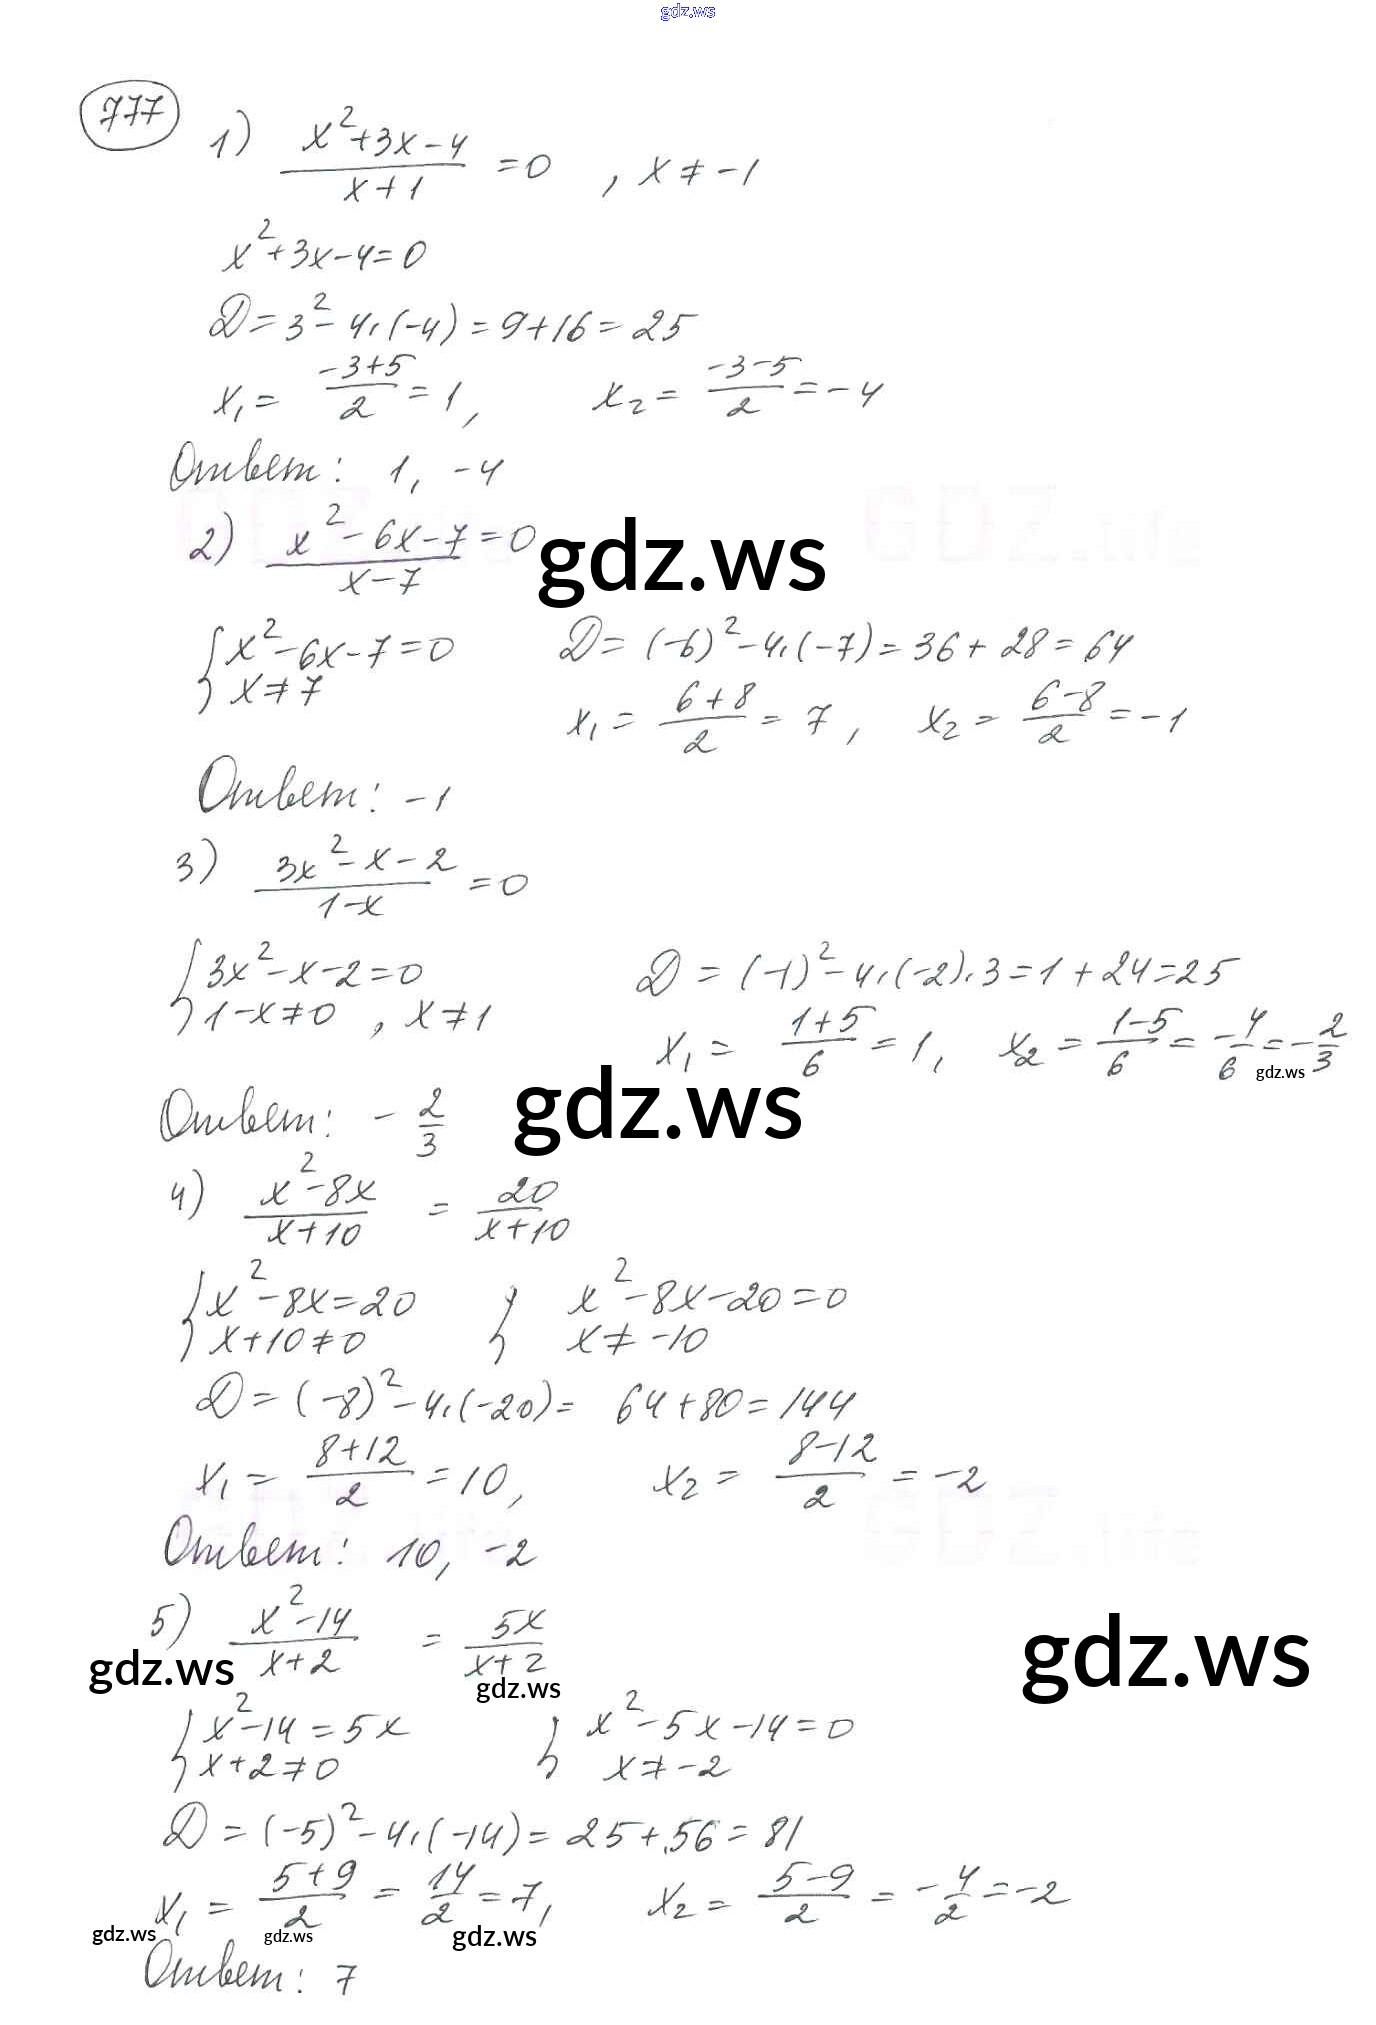 gdz.ws
777
1) (x²+3x-4)/(x+1) =0 , x≠-1
x²+3x-4=0
D=3²-4·(-4)=9+16=25
x₁= (-3+5)/2 =1, x₂= (-3-5)/2 =-4
Ответ: 1, -4
GDZ.life GDZ.life
2) (x²-6x-7)/(x-7) =0
gdz.ws
{x²-6x-7=0 D=(-6)²-4·(-7)=36+28=64
x≠7
x₁= (6+8)/2 = 7, x₂= (6-8)/2 =-1
Ответ: -1
3) (3x²-x-2)/(1-x) =0
{3x²-x-2=0 D=(-1)²-4·(-2)·3=1+24=25
1-x≠0, x≠1
x₁= (1+5)/6 =1, x₂= (1-5)/6 = -4/6 =-2/3
gdz.ws
Ответ: -2/3
gdz.ws
4) (x²-8x)/(x+10) = 20/(x+10)
{x²-8x=20 { x²-8x-20=0
x+10≠0 x≠-10
D=(-8)²-4·(-20)= 64+80=144
x₁= (8+12)/2 =10, x₂= (8-12)/2 =-2
GDZ.life GDZ.life
Ответ: 10, -2
5) (x²-14)/(x+2) = 5x/(x+2)
gdz.ws gdz.ws gdz.ws
{x²-14=5x { x²-5x-14=0
x+2≠0 x≠-2
D=(-5)²-4·(-14)=25+56=81
x₁= (5+9)/2 = 14/2 =7, x₂= (5-9)/2 = -4/2 =-2
gdz.ws gdz.ws gdz.ws
Ответ: 7